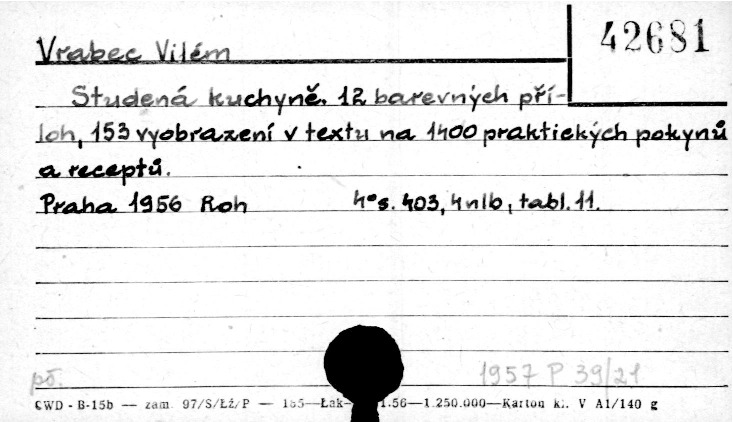 42681
Vrabec Vilém
Studená kuchyně. 12 barevných pří-
loh, 153 vyobrazení v textu na 1400 praktických pokynů
a receptů.
Praha 1956 Roh 4° s. 403, 4 nlb, tabl. 11.
1957 P 39/21
pł.
CWD - B-15b — zam. 97/S/Łź/P — 165—Łak- 1.56—1.250.000—Karton kl. V A1/140 g